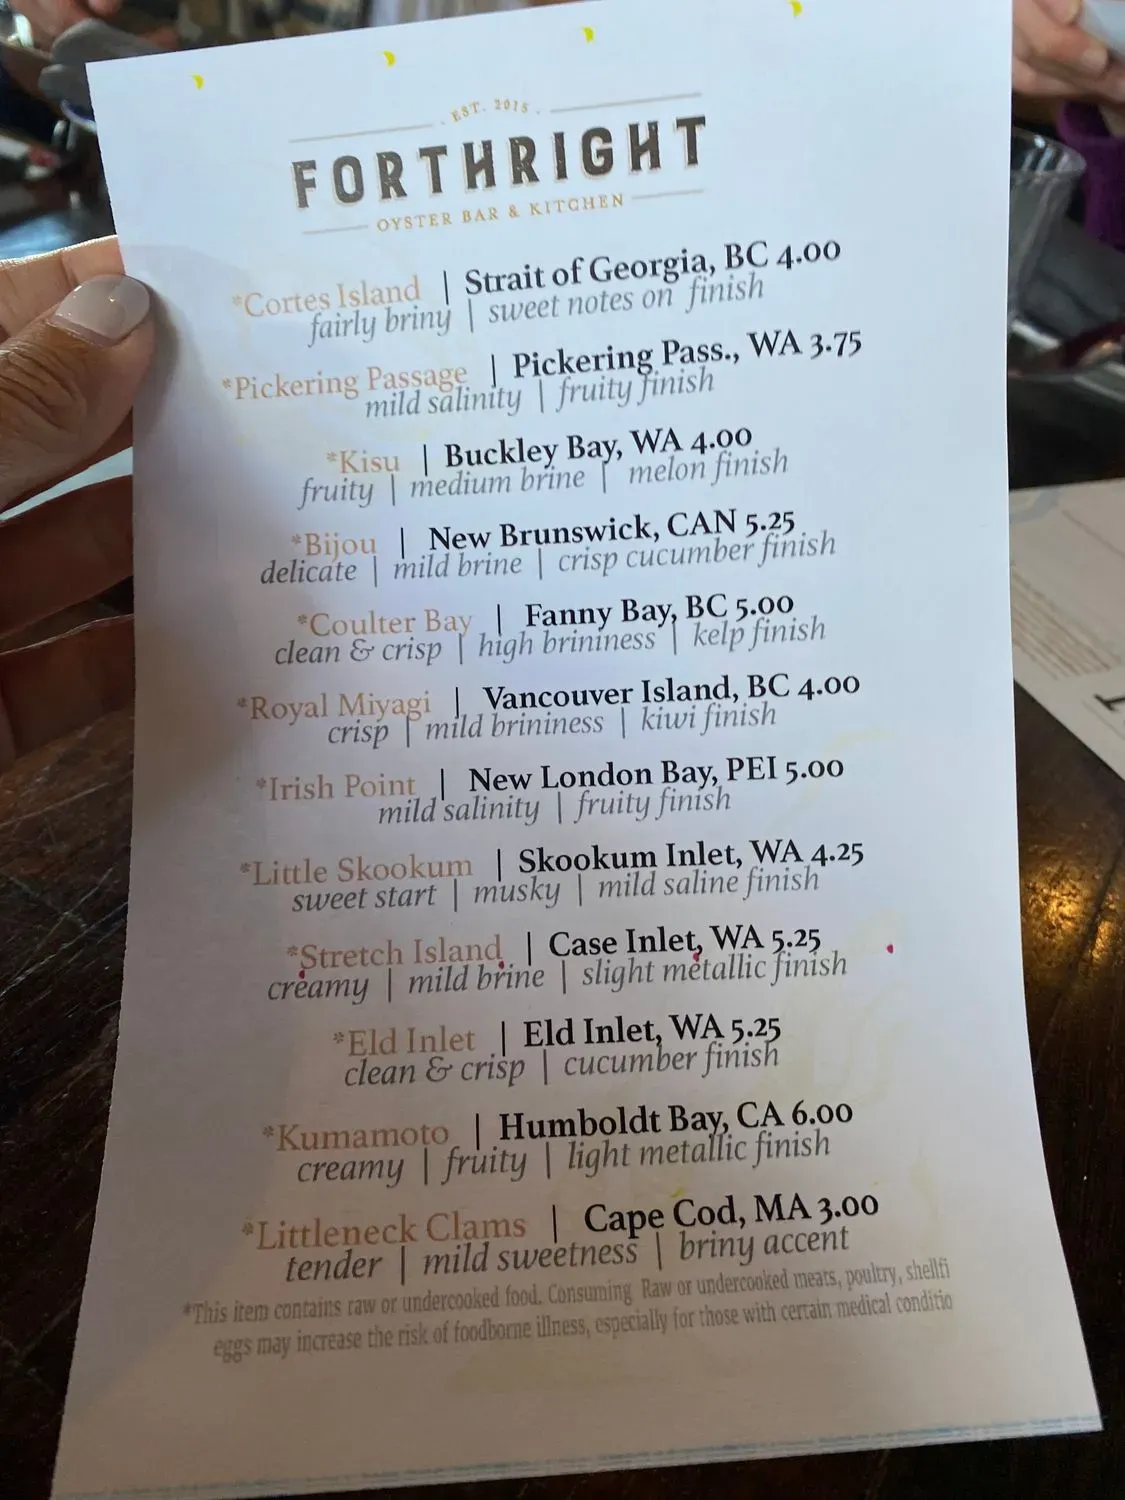 EST. 2015
FORTHRIGHT
OYSTER BAR & KITCHEN
*Cortes Island | Strait of Georgia, BC 4.00
fairly briny | sweet notes on finish
*Pickering Passage | Pickering Pass., WA 3.75
mild salinity | fruity finish
*Kisu | Buckley Bay, WA 4.00
fruity | medium brine | melon finish
*Bijou | New Brunswick, CAN 5.25
delicate | mild brine | crisp cucumber finish
*Coulter Bay | Fanny Bay, BC 5.00
clean & crisp | high brininess | kelp finish
*Royal Miyagi | Vancouver Island, BC 4.00
crisp | mild brininess | kiwi finish
*Irish Point | New London Bay, PEI 5.00
mild salinity | fruity finish
*Little Skookum | Skookum Inlet, WA 4.25
sweet start | musky | mild saline finish
*Stretch Island | Case Inlet, WA 5.25
creamy | mild brine | slight metallic finish
*Eld Inlet | Eld Inlet, WA 5.25
clean & crisp | cucumber finish
*Kumamoto | Humboldt Bay, CA 6.00
creamy | fruity | light metallic finish
*Littleneck Clams | Cape Cod, MA 3.00
tender | mild sweetness | briny accent
*This item contains raw or undercooked food. Consuming Raw or undercooked meats, poultry, shellfi
eggs may increase the risk of foodborne illness, especially for those with certain medical conditio